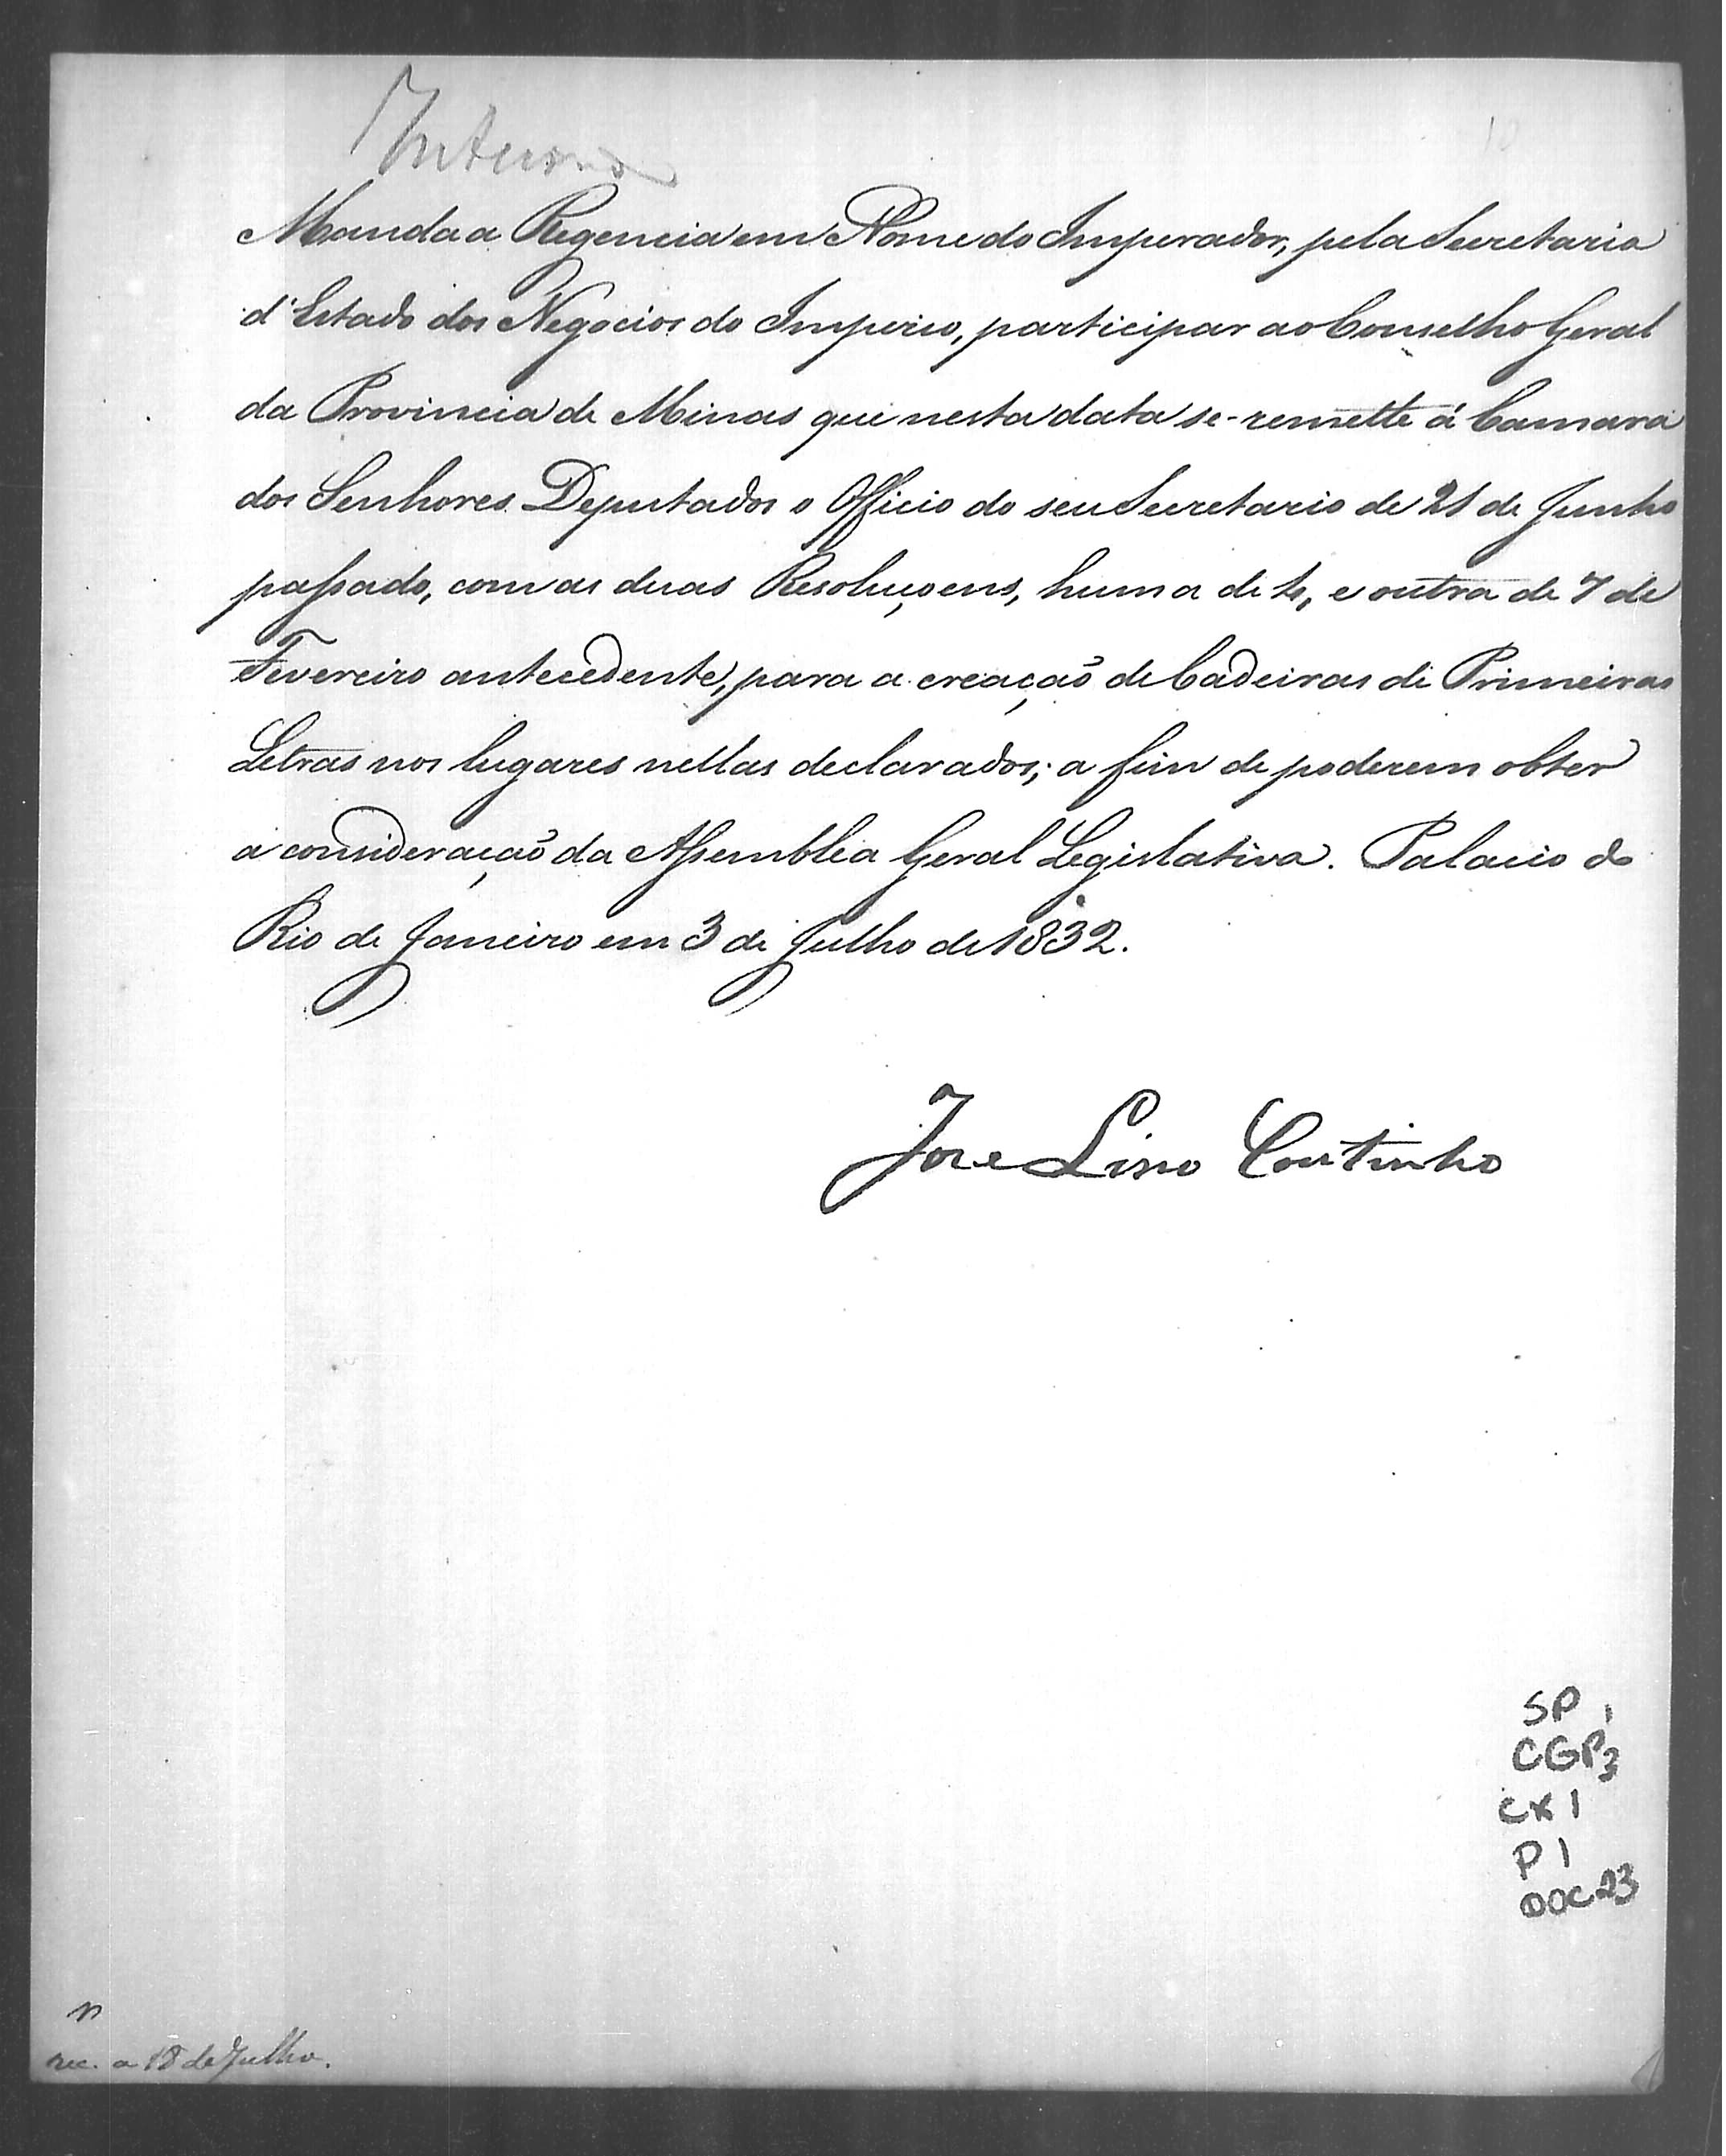 Interno
10
Manda a Regencia em Nome do Imperador, pela Secretaria
d'Estado dos Negocios do Imperio, participar ao Conselho Geral
da Provincia de Minas que nesta data se-remette á Camara
dos Senhores Deputados o Officio do seu Secretario de 21 de Junho
passado, com as duas Resoluçoens, huma de 4, e outra de 7 de
Fevereiro antecedente, para a creação de Cadeiras de Primeiras
Letras nos lugares nellas declarados; a fim de poderem obter
a consideração da Assemblea Geral Legislativa. Palacio do
Rio de Janeiro em 3 de Julho de 1832.
Jose Lino Coutinho
SP 1
CGP3
CX 1
P 1
DOC 23
rec. a 18 de Julho.